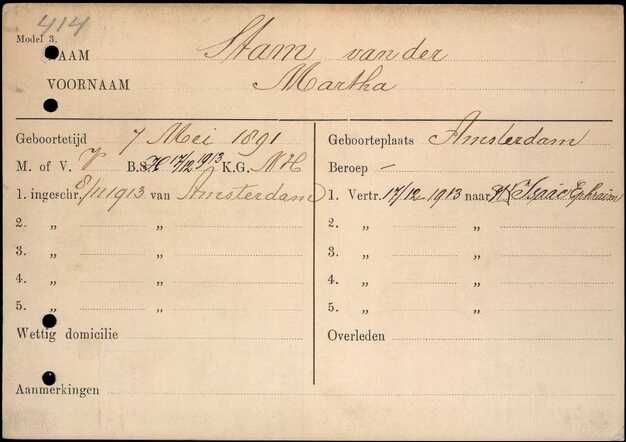 414
Model 3.
NAAM Stam van der
VOORNAAM Martha
Geboortetijd 7 Mei 1891
M. of V. V B.S. H 17/12 1913 K.G. NH
1. ingeschr. 8/11 1913 van Amsterdam
2. „ „
3. „ „
4. „ „
5. „ „
Wettig domicilie
Aanmerkingen
Geboorteplaats Amsterdam
Beroep –
1. Vertr. 17/12 1913 naar Isaac Ephraim
2. „ „
3. „ „
4. „ „
5. „ „
Overleden